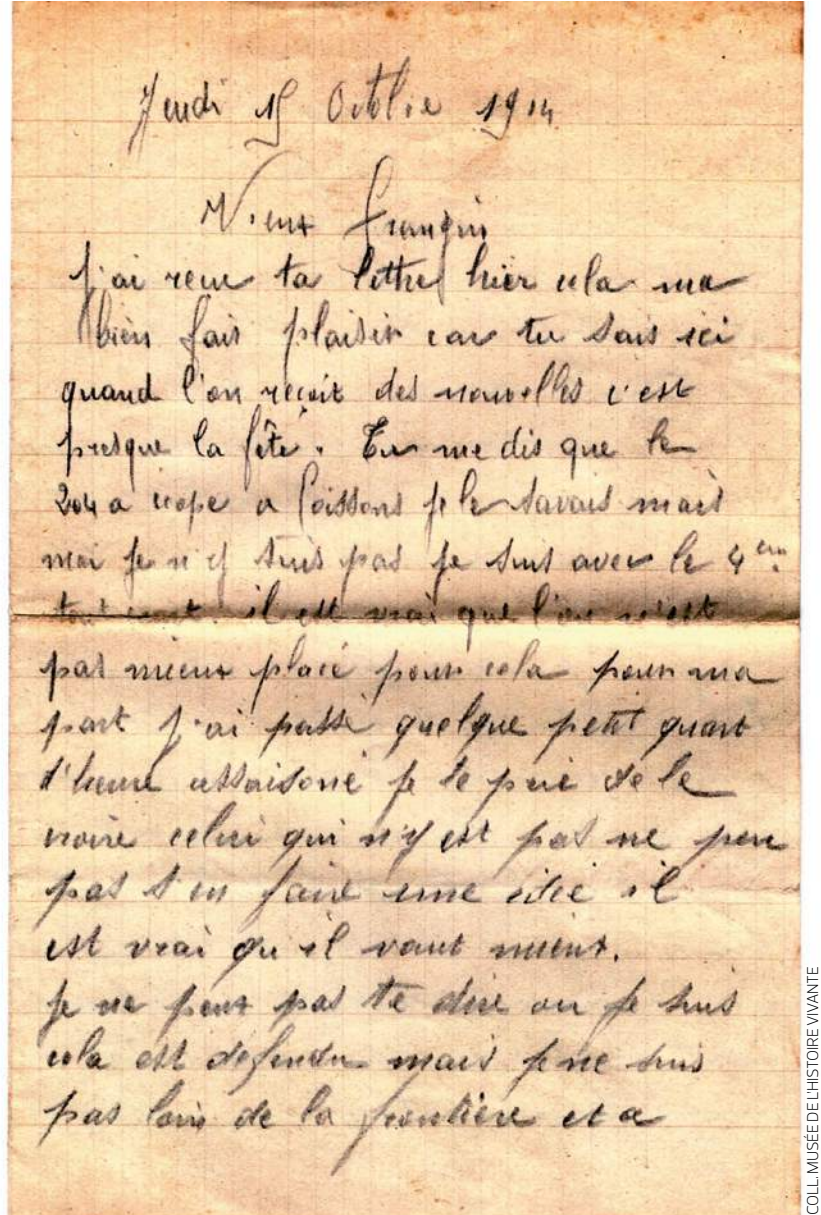 Jeudi 15 Octobre 1914
Vieux frangin
J'ai reçu ta lettre hier cela ma
bien fait plaisir car tu sais ici
quand l'on reçoit des nouvelles c'est
presque la fête. Tu me dis que le
204 a écopé a Soissons je le savais mais
moi je n'y suis pas je suis avec le 4 eme
tout court. il est vrai que l'on n'est
pas mieux placé pour cela pour ma
part j'ai passé quelque petit quart
d'heure assaisoné je te prie de le
croire celui qui n'y est pas ne peu
pas s'en faire une idée il
est vrai qu'il vaut mieux.
Je ne peux pas te dire ou je suis
cela est defendu mais je ne suis
pas loin de la frontière et a
COLL. MUSÉE DE L'HISTOIRE VIVANTE